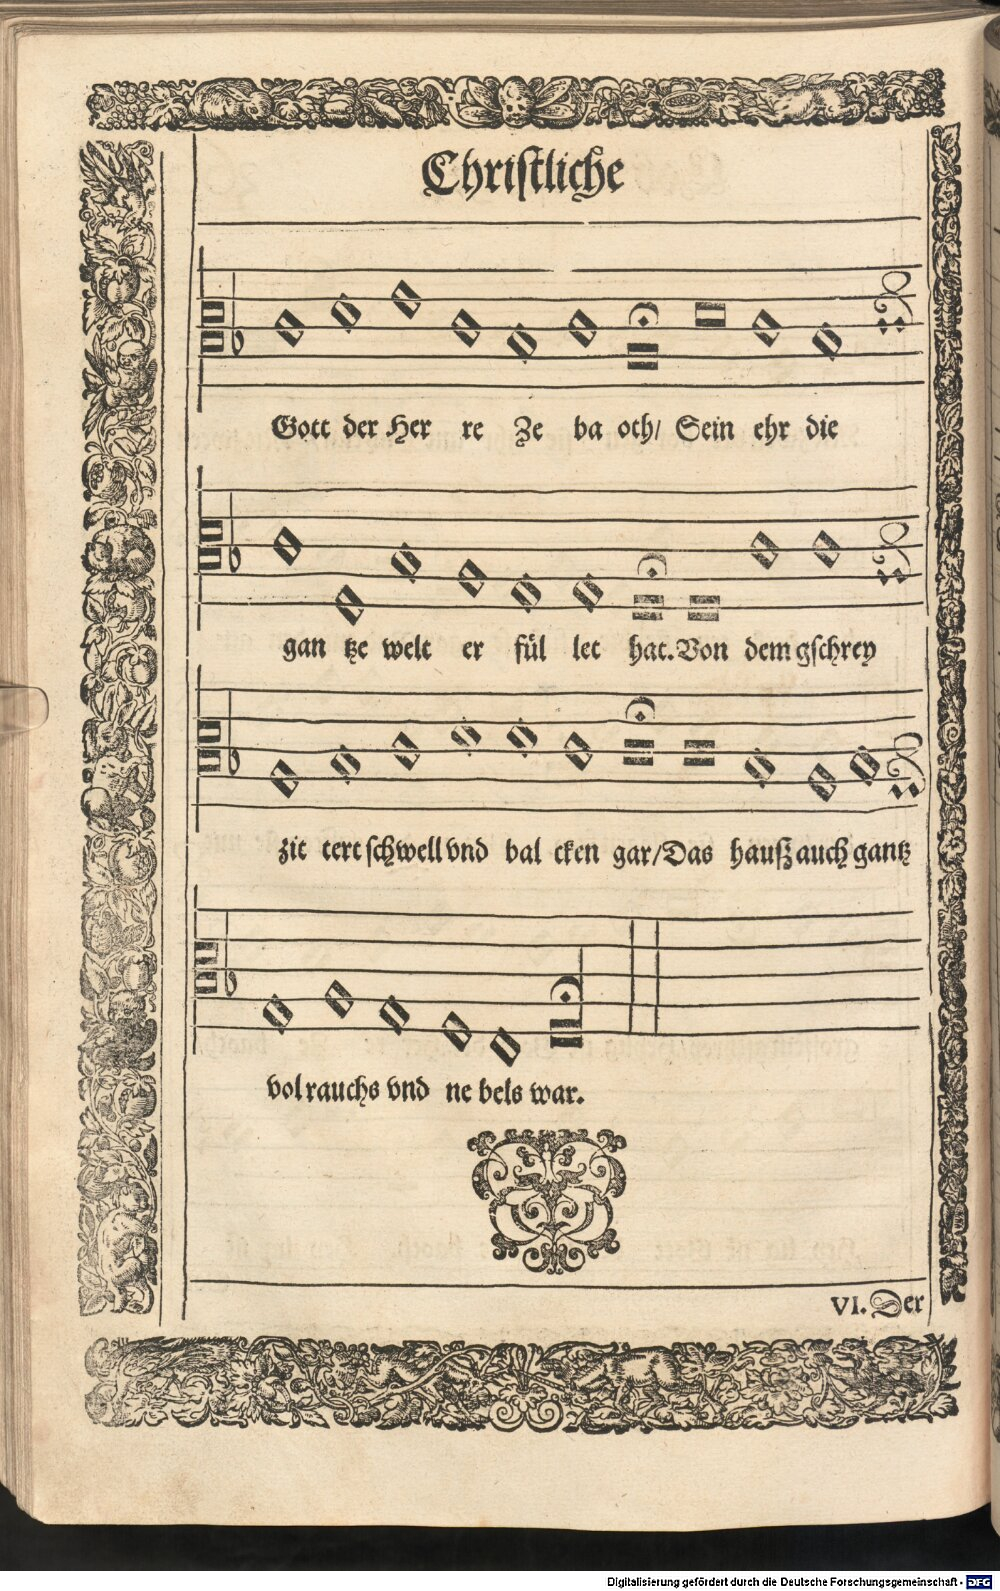 Christliche
Gott der Her re Ze ba oth/ Sein ehr die
gan tze welt er fül let hat. Von dem gschrey
zit tert schwell vnd bal cken gar/ Das hauß auch gantz
vol rauchs vnd ne bels war.
VI. Der
Digitalisierung gefördert durch die Deutsche Forschungsgemeinschaft - DFG